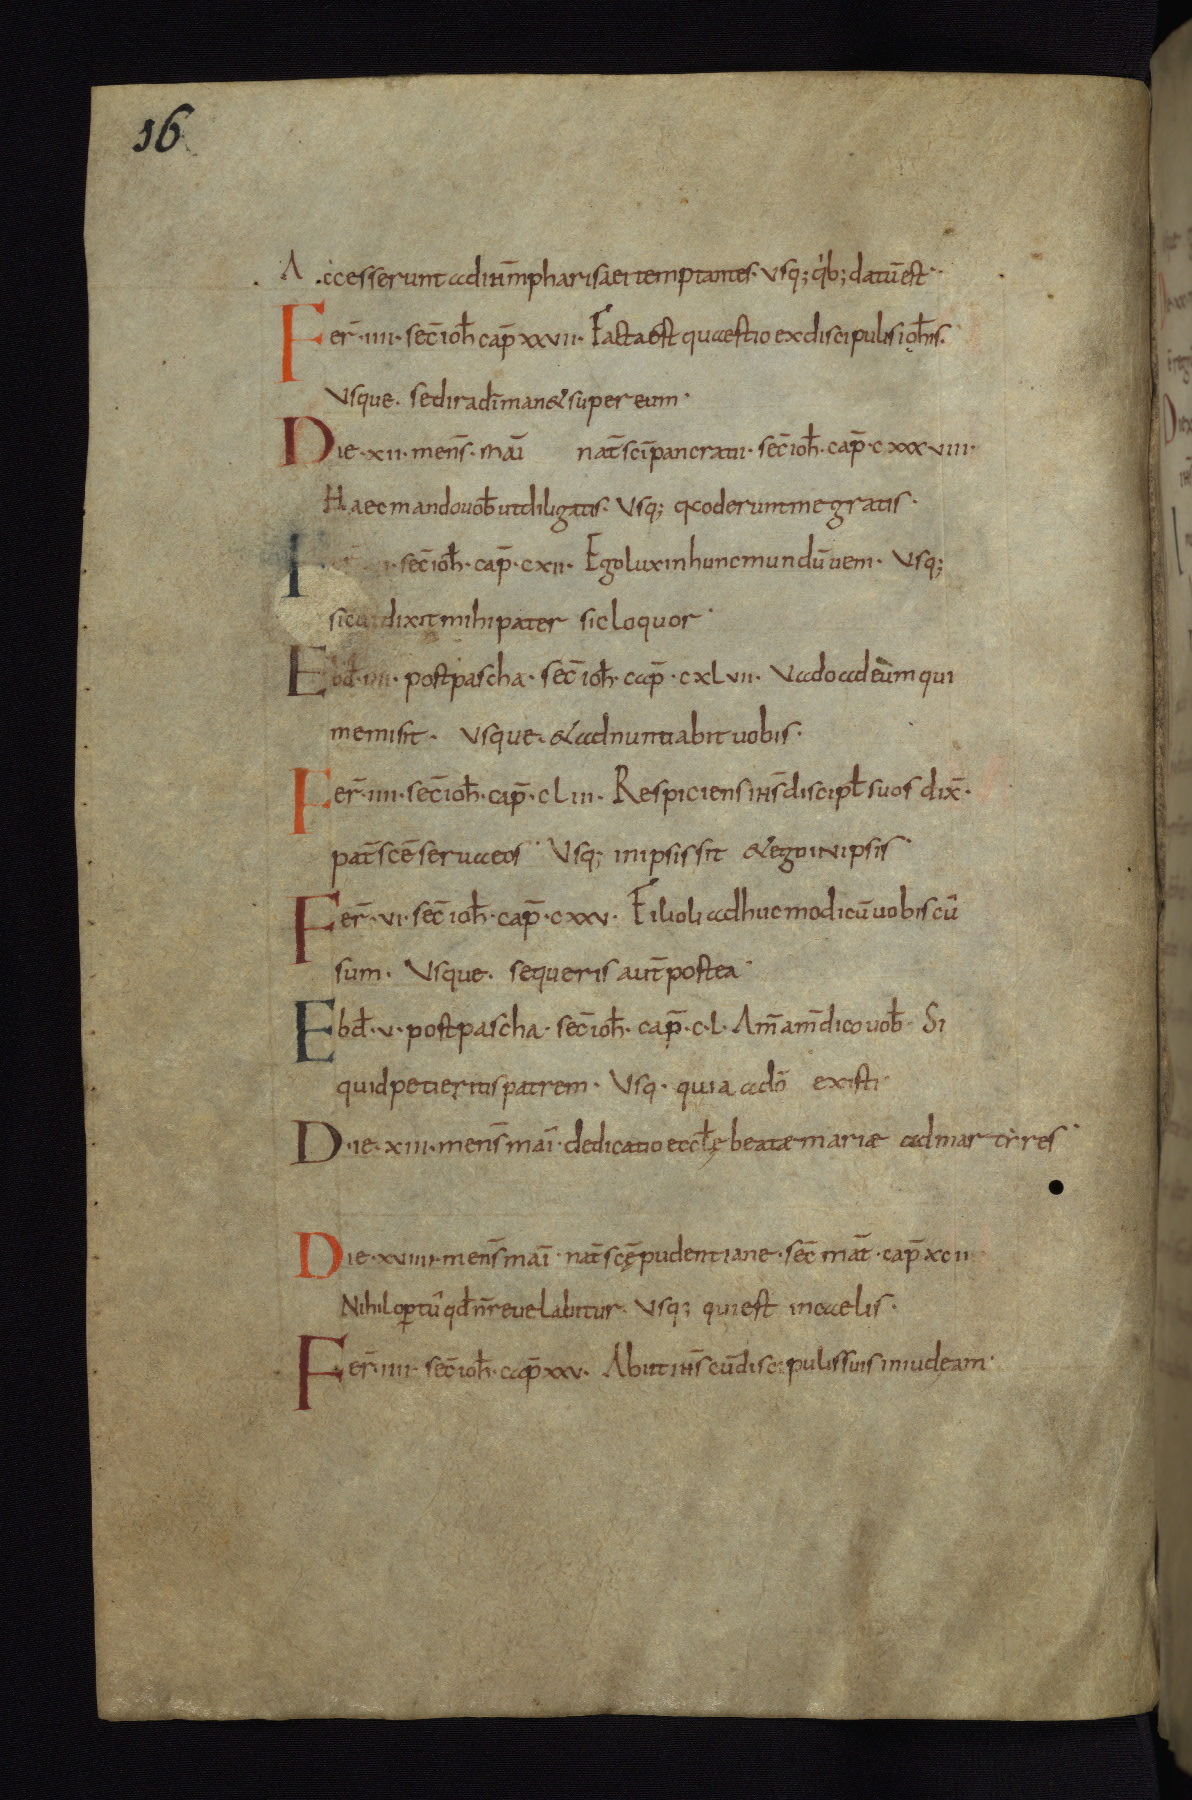 16
Accesserunt ad ihm̄ pharisaei temptantes. Usq; q'b; datū est.
Fer̄. iiii. sec̄ ioh̄ cap̄ xxvii. Facta est quaestio ex discipulis ioh̄is.
Usque. sed ira dī man& super eum.
Die. xii. mens̄. maī nat̄ sc̄i pancratii. sec̄ ioh̄. cap̄. cxxxviii.
Haec mando vob̄ ut diligatis. Usq; q̄a oderunt me gratis.
F sec̄ ioh̄. cap̄. cxii. Ego lux in hunc mundū veni. Usq;
sicut dixit mihi pater sic loquor.
Ebd̄. iiii. post pascha. sec̄ ioh̄. cap̄. cxlvii. Vado ad eum qui
me misit. Usque. & adnuntiabit vobis.
Fer̄. iiii. sec̄ ioh̄. cap̄. cliii. Respiciens ihs̄ discipl̄ suos dix̄.
pat̄ sc̄e serva eos Usq; in ipsis sit & ego in ipsis
Fer̄. vi. sec̄ ioh̄. cap̄. cxxv. Filioli adhuc modicū vobiscū
sum. Usque. sequeris aut̄ postea
Ebd̄. v. post pascha. sec̄ ioh̄. cap̄. c.l. Am̄ am̄ dico vob̄. Si
quid petieritis patrem. Usq. quia a dō existi
Die. xiii. mens̄ maī. dedicatio eccl̄ę beatae mariae ad martyres
Die. xviiii. mens̄ maī. nat̄ sc̄ę pudentiane. sec̄ mat̄. cap̄ xcii
Nihil opertū qd̄ n̄ revelabitur. Usq; qui est in caelis.
Fer̄. iiii. sec̄ ioh̄. cap̄ xxv. Abiit ihs̄ cū discipulis suis in iudęam.